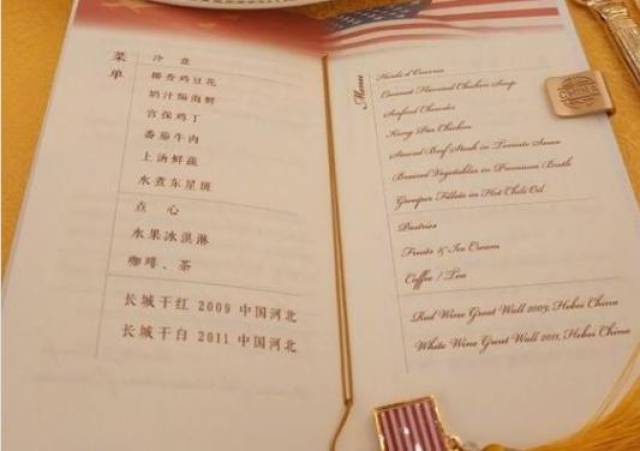 菜单
冷盘
椰香鸡豆花
奶汁焗海鲜
宫保鸡丁
番茄牛肉
上汤鲜蔬
水煮东星斑
点心
水果冰淇淋
咖啡、茶
长城干红 2009 中国河北
长城干白 2011 中国河北
Menu
Coconut Flavored Chicken Soup
Seafood Chowder
Kung Pao Chicken
Stewed Beef Steak in Tomato Sauce
Braised Vegetables in Premium Broth
Grouper Fillets in Hot Chili Oil
Pastries
Fruits & Ice Cream
Coffee / Tea
Red Wine Great Wall 2009, Hebei China
White Wine Great Wall 2011, Hebei China